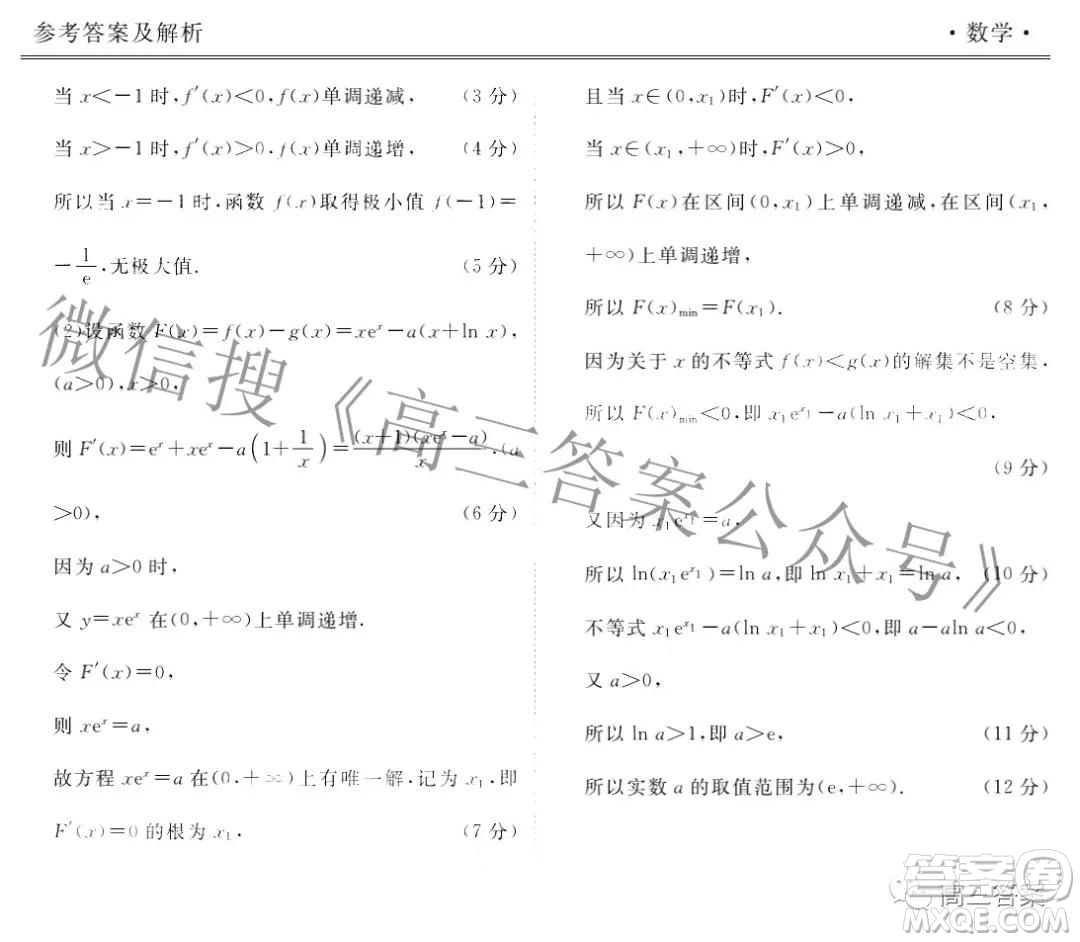 参考答案及解析
·数学·
当 x<-1 时,f′(x)<0,f(x)单调递减, (3 分)
当 x>-1 时,f′(x)>0,f(x)单调递增, (4 分)
所以当 x=-1 时,函数 f(x)取得极小值 f(-1)=
-1/e,无极大值. (5 分)
(2)设函数 F(x)=f(x)-g(x)=xeˣ-a(x+ln x),
(a>0),x>0,
则 F′(x)=eˣ+xeˣ-a(1+1/x)=(x+1)(xeˣ-a)/x,(a
>0), (6 分)
因为 a>0 时,
又 y=xeˣ 在(0,+∞)上单调递增.
令 F′(x)=0,
则 xeˣ=a,
故方程 xeˣ=a 在(0,+∞)上有唯一解,记为 x₁,即
F′(x)=0 的根为 x₁, (7 分)
且当 x∈(0,x₁)时,F′(x)<0,
当 x∈(x₁,+∞)时,F′(x)>0,
所以 F(x)在区间(0,x₁)上单调递减,在区间(x₁,
+∞)上单调递增,
所以 F(x)min=F(x₁). (8 分)
因为关于 x 的不等式 f(x)<g(x)的解集不是空集,
所以 F(x)min<0,即 x₁e^x₁-a(ln x₁+x₁)<0,
(9 分)
又因为 x₁e^x₁=a,
所以 ln(x₁e^x₁)=ln a,即 ln x₁+x₁=ln a, (10 分)
不等式 x₁e^x₁-a(ln x₁+x₁)<0,即 a-aln a<0,
又 a>0,
所以 ln a>1,即 a>e, (11 分)
所以实数 a 的取值范围为(e,+∞). (12 分)
微信搜《高三答案公众号》
答案圈
高三答案
MXQE.COM